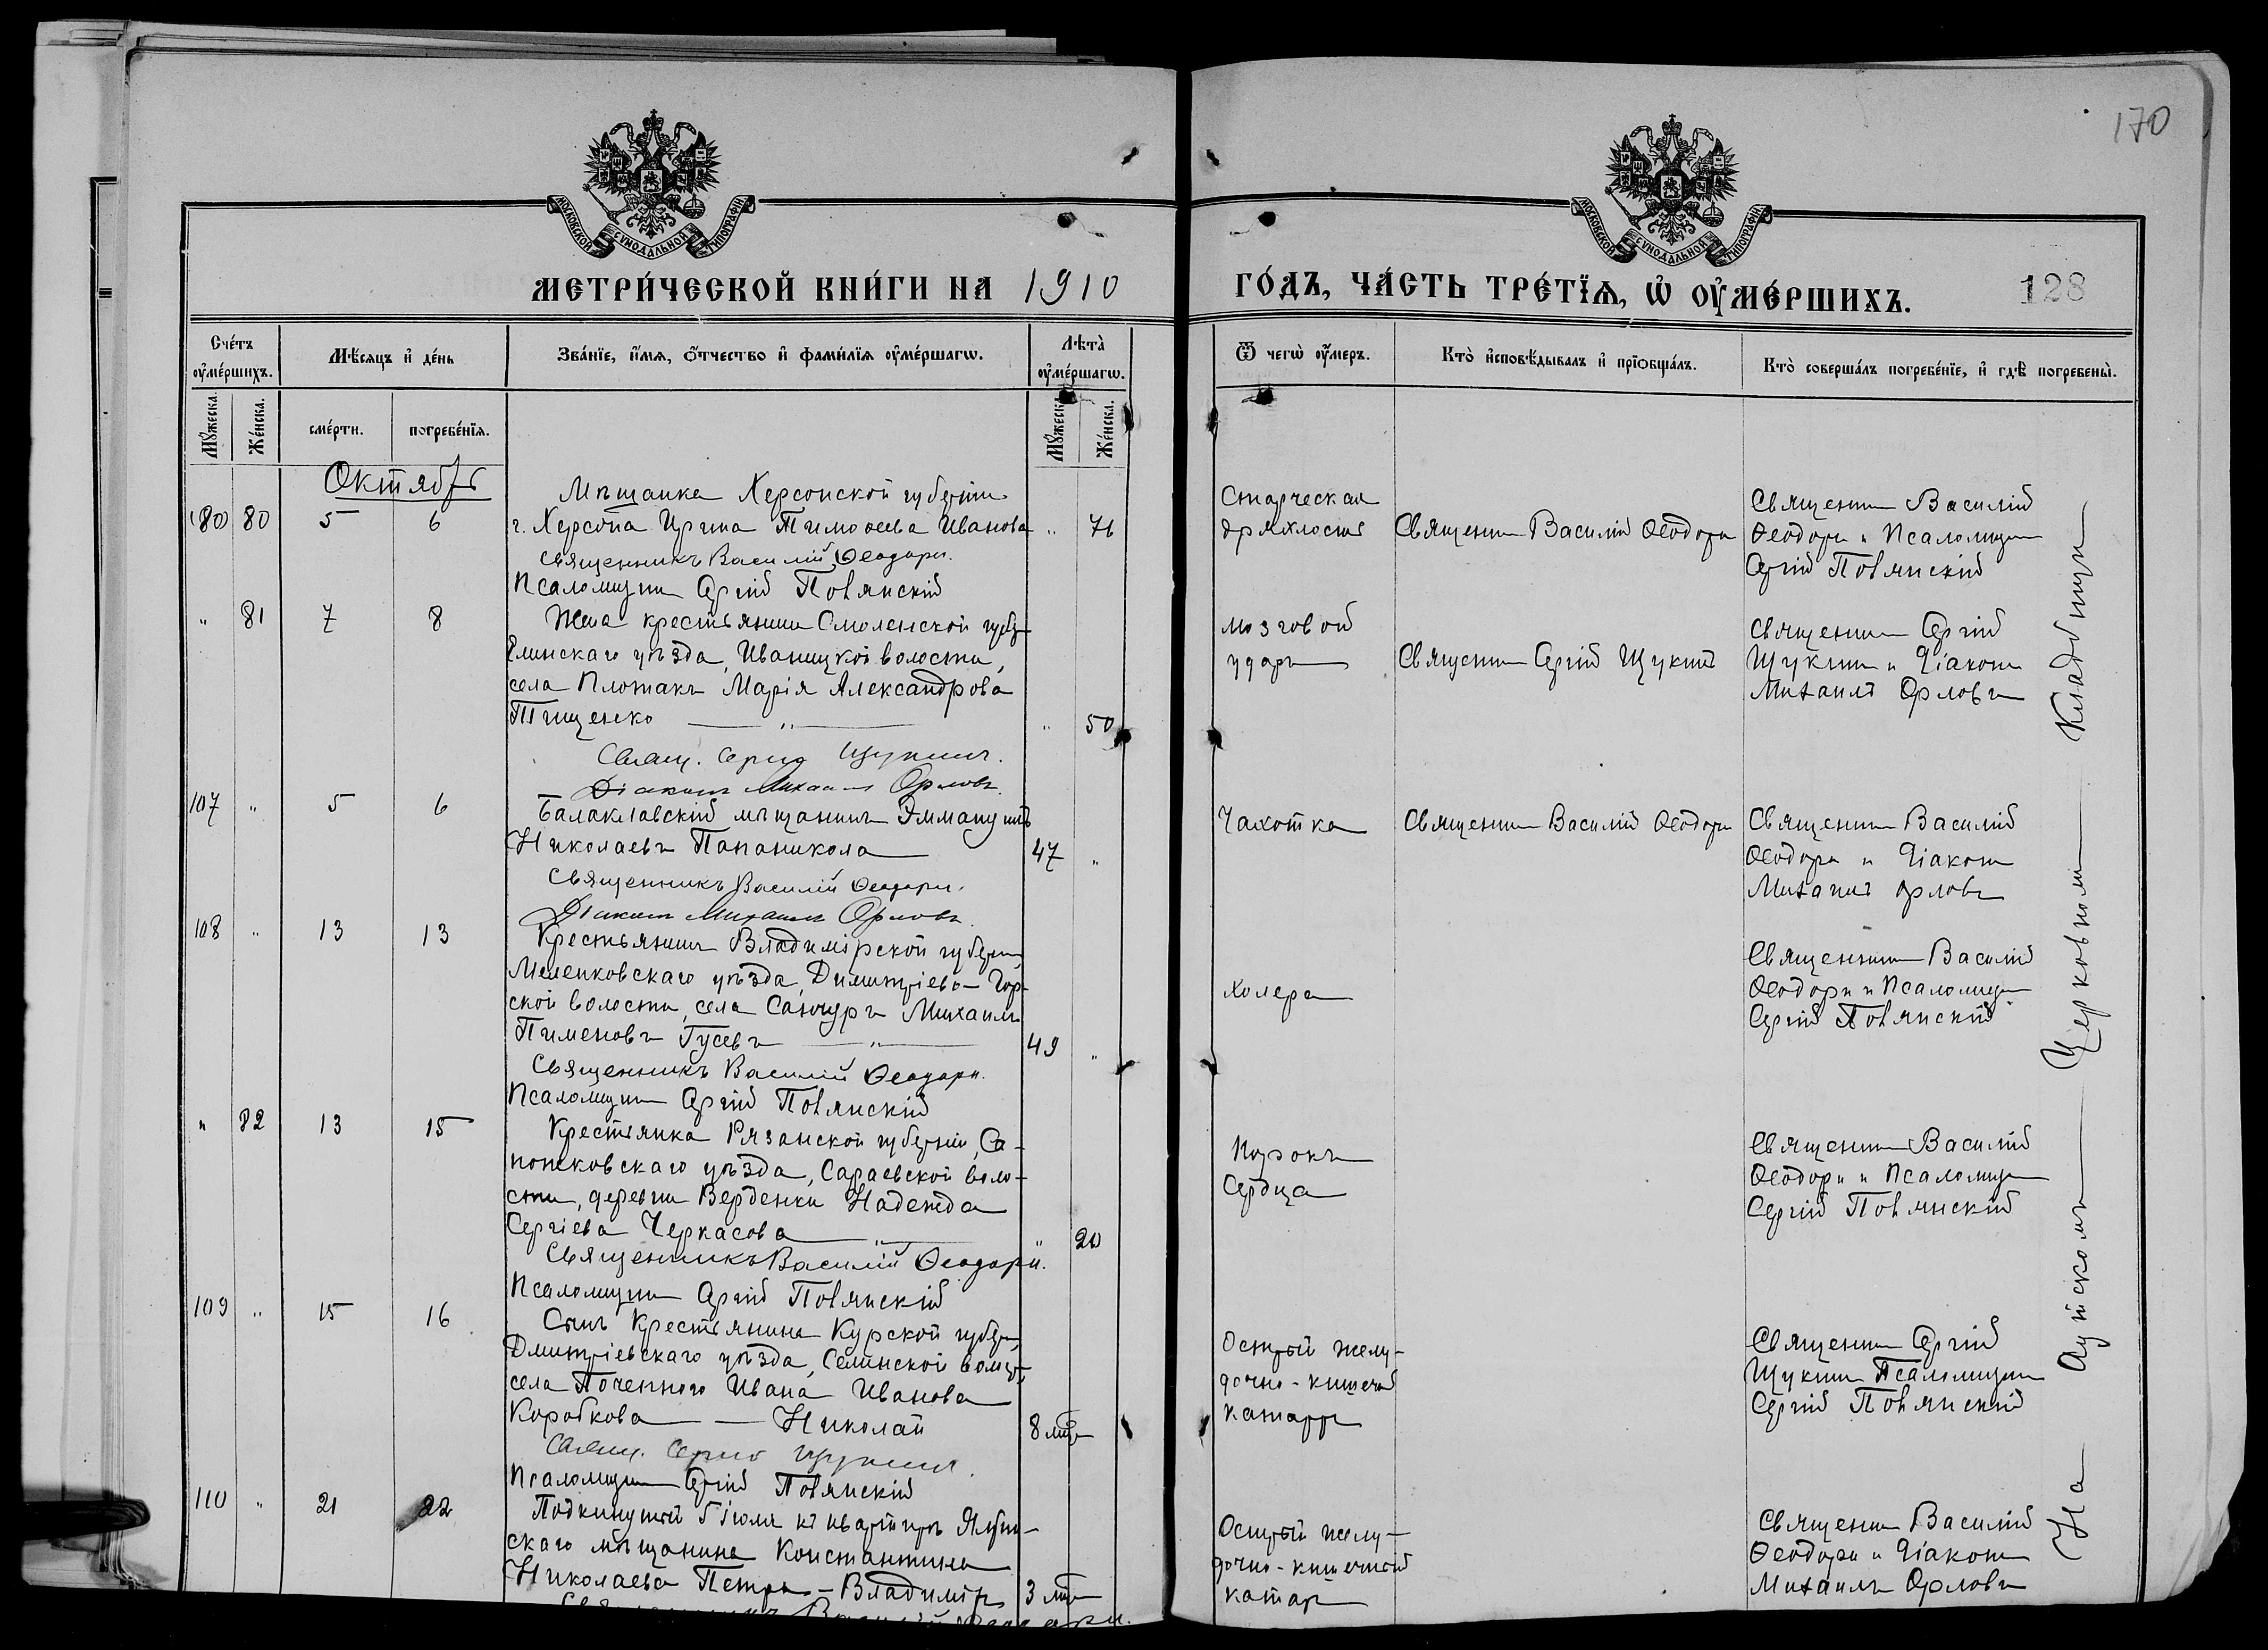 170
МОСКОВСКОЙ СѴНОДАЛЬНОЙ ТИПОГРАФІИ
МОСКОВСКОЙ СѴНОДАЛЬНОЙ ТИПОГРАФІИ
МЕТРИ́ЧЕСКОЙ КНИ́ГИ НА 1910
ГО́ДЪ, ЧА́СТЬ ТРЕ́ТЇѦ, Ѡ҆ ОУ҆МЕ́РШИХЪ.
128
Сче́тъ оу҆ме́ршихъ.
Мѣ́сяцъ и҆ де́нь
Зва́нїе, и҆́мѧ, ѻ҆́тчество и҆ фами́лїѧ оу҆ме́ршагѡ.
Лѣ́та̀ оу҆ме́ршагѡ.
Ѿ чегѡ̀ оу҆́меръ.
Кто̀ и҆сповѣ́дывалъ и҆ прїѡбща́лъ.
Кто̀ соверша́лъ погребе́нїе, и҆ гдѣ̀ погребены̀.
Мꙋ́жеска.
Же́нска.
сме́рти.
погребе́нїѧ.
Мꙋ́жеска.
Же́нска.
Октябрь
180 80 5 6
Мѣщанка Херсонской губерніи
г. Херсона Ирина Тимоѳеева Иванова " 76
Священникъ Василій Ѳеодори.
Псаломщик Сергій Повянскій
Старческая
дряхлость
Священник Василій Ѳеодори
Священник Василій
Ѳеодори и Псаломщик
Сергій Повянскій
" 81 7 8
Жена крестьянина Смоленской губер
Елинскаго уѣзда, Иваницкой волости,
села Плотакъ Марія Александрова
Тищенко " " 50
Свящ. Сергій Щукинъ.
Діаконъ Михаилъ Орловъ.
Мозговой
ударъ
Священник Сергій Щукинъ
Священник Сергій
Щукинъ и Діаконъ
Михаилъ Орловъ
107 " 5 6
Балаклавскій мѣщанинъ Эммануилъ
Николаевъ Папаникола 47 "
Священникъ Василій Ѳеодори.
Діаконъ Михаилъ Орловъ.
Чахотка
Священник Василій Ѳеодори
Священник Василій
Ѳеодори и Діаконъ
Михаилъ Орловъ
108 " 13 13
Крестьянинъ Владимірской губерніи
Меленковскаго уѣзда, Димитріево-Гор-
ской волости, села Санчуръ Михаилъ
Пименовъ Гусевъ " 49 "
Священникъ Василій Ѳеодори.
Псаломщик Сергій Повянскій
Холера
Священник Василій
Ѳеодори и Псаломщик
Сергій Повянскій
" 82 13 15
Крестьянка Рязанской губерніи, Са-
пожковскаго уѣзда, Сараевской воло-
сти, деревни Верденки Надежда
Сергіева Черкасова " " 20
Священникъ Василій Ѳеодори.
Псаломщик Сергій Повянскій
Порокъ
Сердца
Священник Василій
Ѳеодори и Псаломщик
Сергій Повянскій
109 " 15 16
Сынъ Крестьянина Курской губерн
Дмитріевскаго уѣзда, Селинской волост
села Поченного Ивана Иванова
Коробкова — Николай 8 мѣс
Свящ. Сергій Щукинъ.
Псаломщик Сергій Повянскій
Острый желу-
дочно-кишечный
катарръ
Священник Сергій
Щукинъ Псаломщик
Сергій Повянскій
110 " 21 22
Подкинутый 5 іюля къ квартирѣ Ялтин-
скаго мѣщанина Константина
Николаева Петра - Владиміръ 3 мѣс
Священникъ Василій Ѳеодори.
Острый желу-
дочно-кишечный
катар
Священник Василій
Ѳеодори и Діаконъ
Михаилъ Орловъ
На Аутскомъ Церковномъ Кладбищѣ